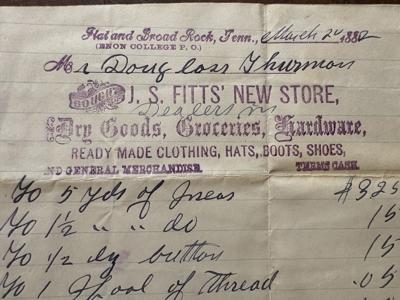 Flat and Broad Rock, Tenn., March 24 1882
(ENON COLLEGE P. O.)
Mr Douglass Thurman
BOUGHT J. S. FITTS' NEW STORE,
Dealers in
Dry Goods, Groceries, Hardware,
READY MADE CLOTHING, HATS, BOOTS, SHOES,
AND GENERAL MERCHANDISE. TERMS CASH.
To 5 yds of Jneas $325
To 1½ " " do 15
To ½ dz button 15
To 1 Spool of Thread .05